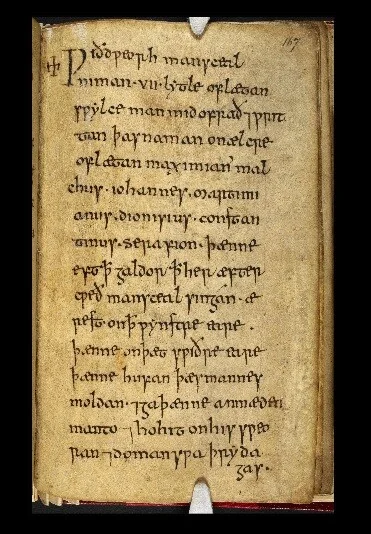 167
✠ Ƿið dƿeorh man sceal
niman · VII · lytle oflætan
sƿylce man mid ofrað ⁊ ƿrit
tan þas naman on ælcre
oflætan maximian᾽ mal
chus · iohannes · martimi
anus · dionisius · constan
tinus · serafion · þænne
eft ꝥ galdor ꝥ her æfter
cƿeð man sceal singan · æ
rest on ꝥ ƿynstre eare ·
þænne on þæt sƿiðre eare
þænne bufan þæs mannes
moldan · ⁊ ga þænne an mæden
man to ⁊ ho hit on his sƿeo
ran ⁊ do man sƿa þry da
gas ·